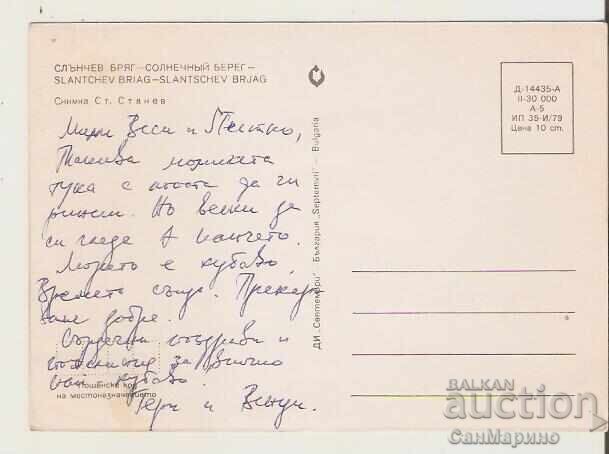 СЛЪНЧЕВ БРЯГ–СОЛНЕЧНЫЙ БЕРЕГ–
SLANTCHEV BRIAG–SLANTSCHEV BRJAG
Снимка Ст. Станев
Мили Веси и Петко,
Такива момичета
тука с лопата да ги
ринеш. Но всеки да
си гледа
Морето е хубаво,
Времето също. Прекар-
ваме добре.
Сърдечни поздрави и
за всичко
най хубаво.
Гери и Венци.
Пощенски код
на местоназначението
ДИ „Септември" – България „Septemvri" – Bulgaria
Д-14435-А
II-30 000
А-5
ИП 35-И/79
Цена 10 ст.
BALKAN
auction
СанМарино